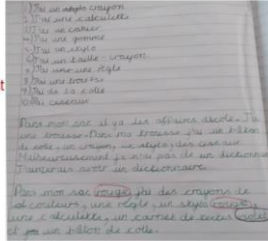 1) J'ai un stylo crayon
2) J'ai une calculette
3) J'ai un cahier
4) J'ai une gomme
5) J'ai un stylo
6) J'ai un taille-crayon
7) J'ai une une règle
8) J'ai une trousse
9) J'ai de la colle
10) des ciseaux
Dans mon sac il y a les affaires d'école. J'ai
une trousse. Dans ma trousse j'ai un bâton
de colle, un crayon, un stylo, des ciseaux
Malheureusement je n'ai pas de un dictionn
J'aimerais avoir un dictionnaire.
Dans mon sac rouge j'ai des crayons de
couleurs, une règle, un stylo
une calculette, un carnet de textes violet
et un bâton de colle.
t